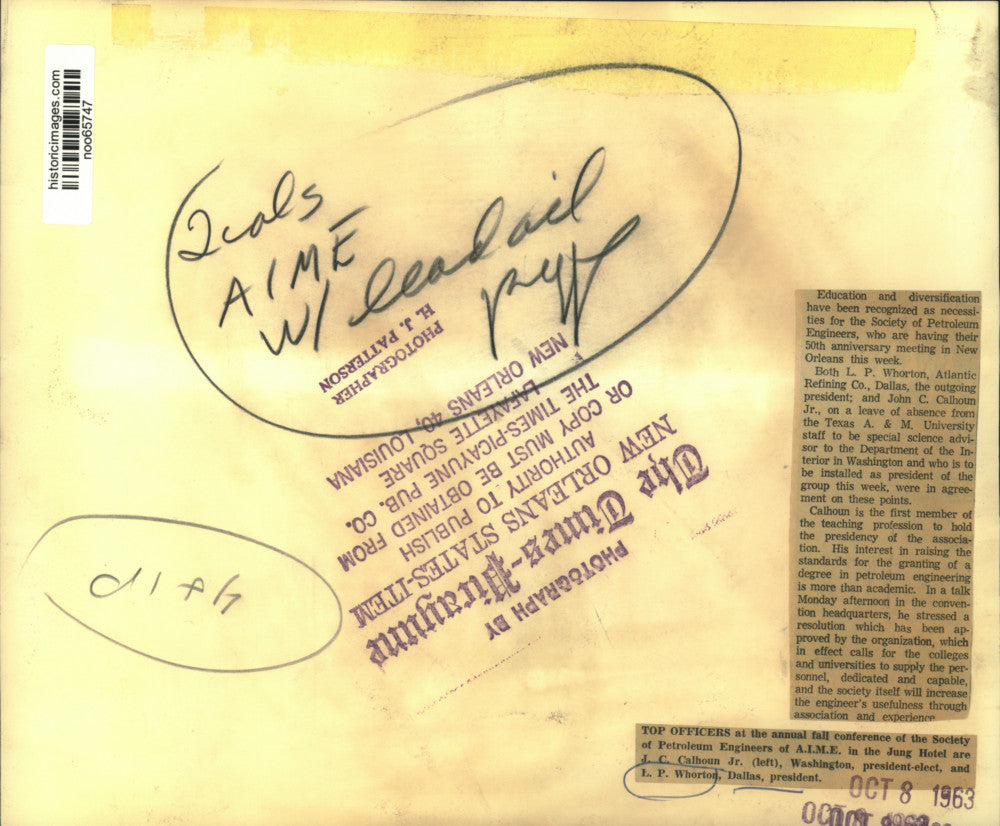 historicimages.com
noo65747
2 cols
AIME
w/ lead oil
PHOTOGRAPHER
H. J. PATTERSON
PHOTOGRAPH BY
The Times-Picayune
NEW ORLEANS STATES-ITEM
AUTHORITY TO PUBLISH
OR COPY MUST BE OBTAINED FROM
THE TIMES-PICAYUNE PUB. CO.
LAFAYETTE SQUARE
NEW ORLEANS 40, LOUISIANA
Education and diversification
have been recognized as necessi-
ties for the Society of Petroleum
Engineers, who are having their
50th anniversary meeting in New
Orleans this week.
Both L. P. Whorton, Atlantic
Refining Co., Dallas, the outgoing
president; and John C. Calhoun
Jr., on a leave of absence from
the Texas A. & M. University
staff to be special science advi-
sor to the Department of the In-
terior in Washington and who is to
be installed as president of the
group this week, were in agree-
ment on these points.
Calhoun is the first member of
the teaching profession to hold
the presidency of the associa-
tion. His interest in raising the
standards for the granting of a
degree in petroleum engineering
is more than academic. In a talk
Monday afternoon in the conven-
tion headquarters, he stressed a
resolution which has been ap-
proved by the organization, which
in effect calls for the colleges
and universities to supply the per-
sonnel, dedicated and capable,
and the society itself will increase
the engineer's usefulness through
association and experience
TOP OFFICERS at the annual fall conference of the Society
of Petroleum Engineers of A.I.M.E. in the Jung Hotel are
J. C. Calhoun Jr. (left), Washington, president-elect, and
L. P. Whorton, Dallas, president.
OCT 8 1963